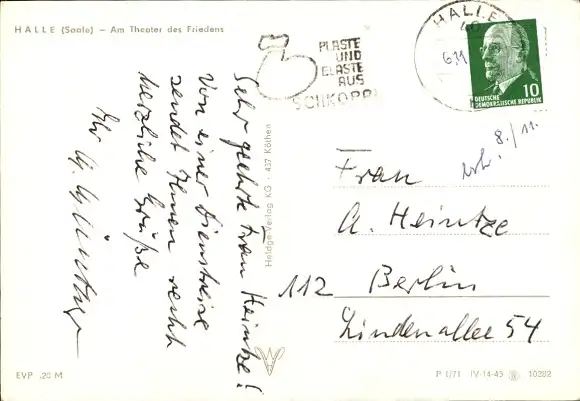 HALLE (Saale) – Am Theater des Friedens
HALLE
40
6.11
PLASTE
UND
ELASTE
AUS
SCHKOPAU
10
DEUTSCHE
DEMOKRATISCHE REPUBLIK
8./11.
Sehr geehrte Frau Heintze!
Von einer Dienstreise
sendet Ihnen recht
herzliche Grüße
Ihr
Heldge-Verlag KG · 437 Köthen
Frau
A. Heintze
112 Berlin
Lindenallee 54
EVP .20 M
P 1/71 IV-14-45 10282